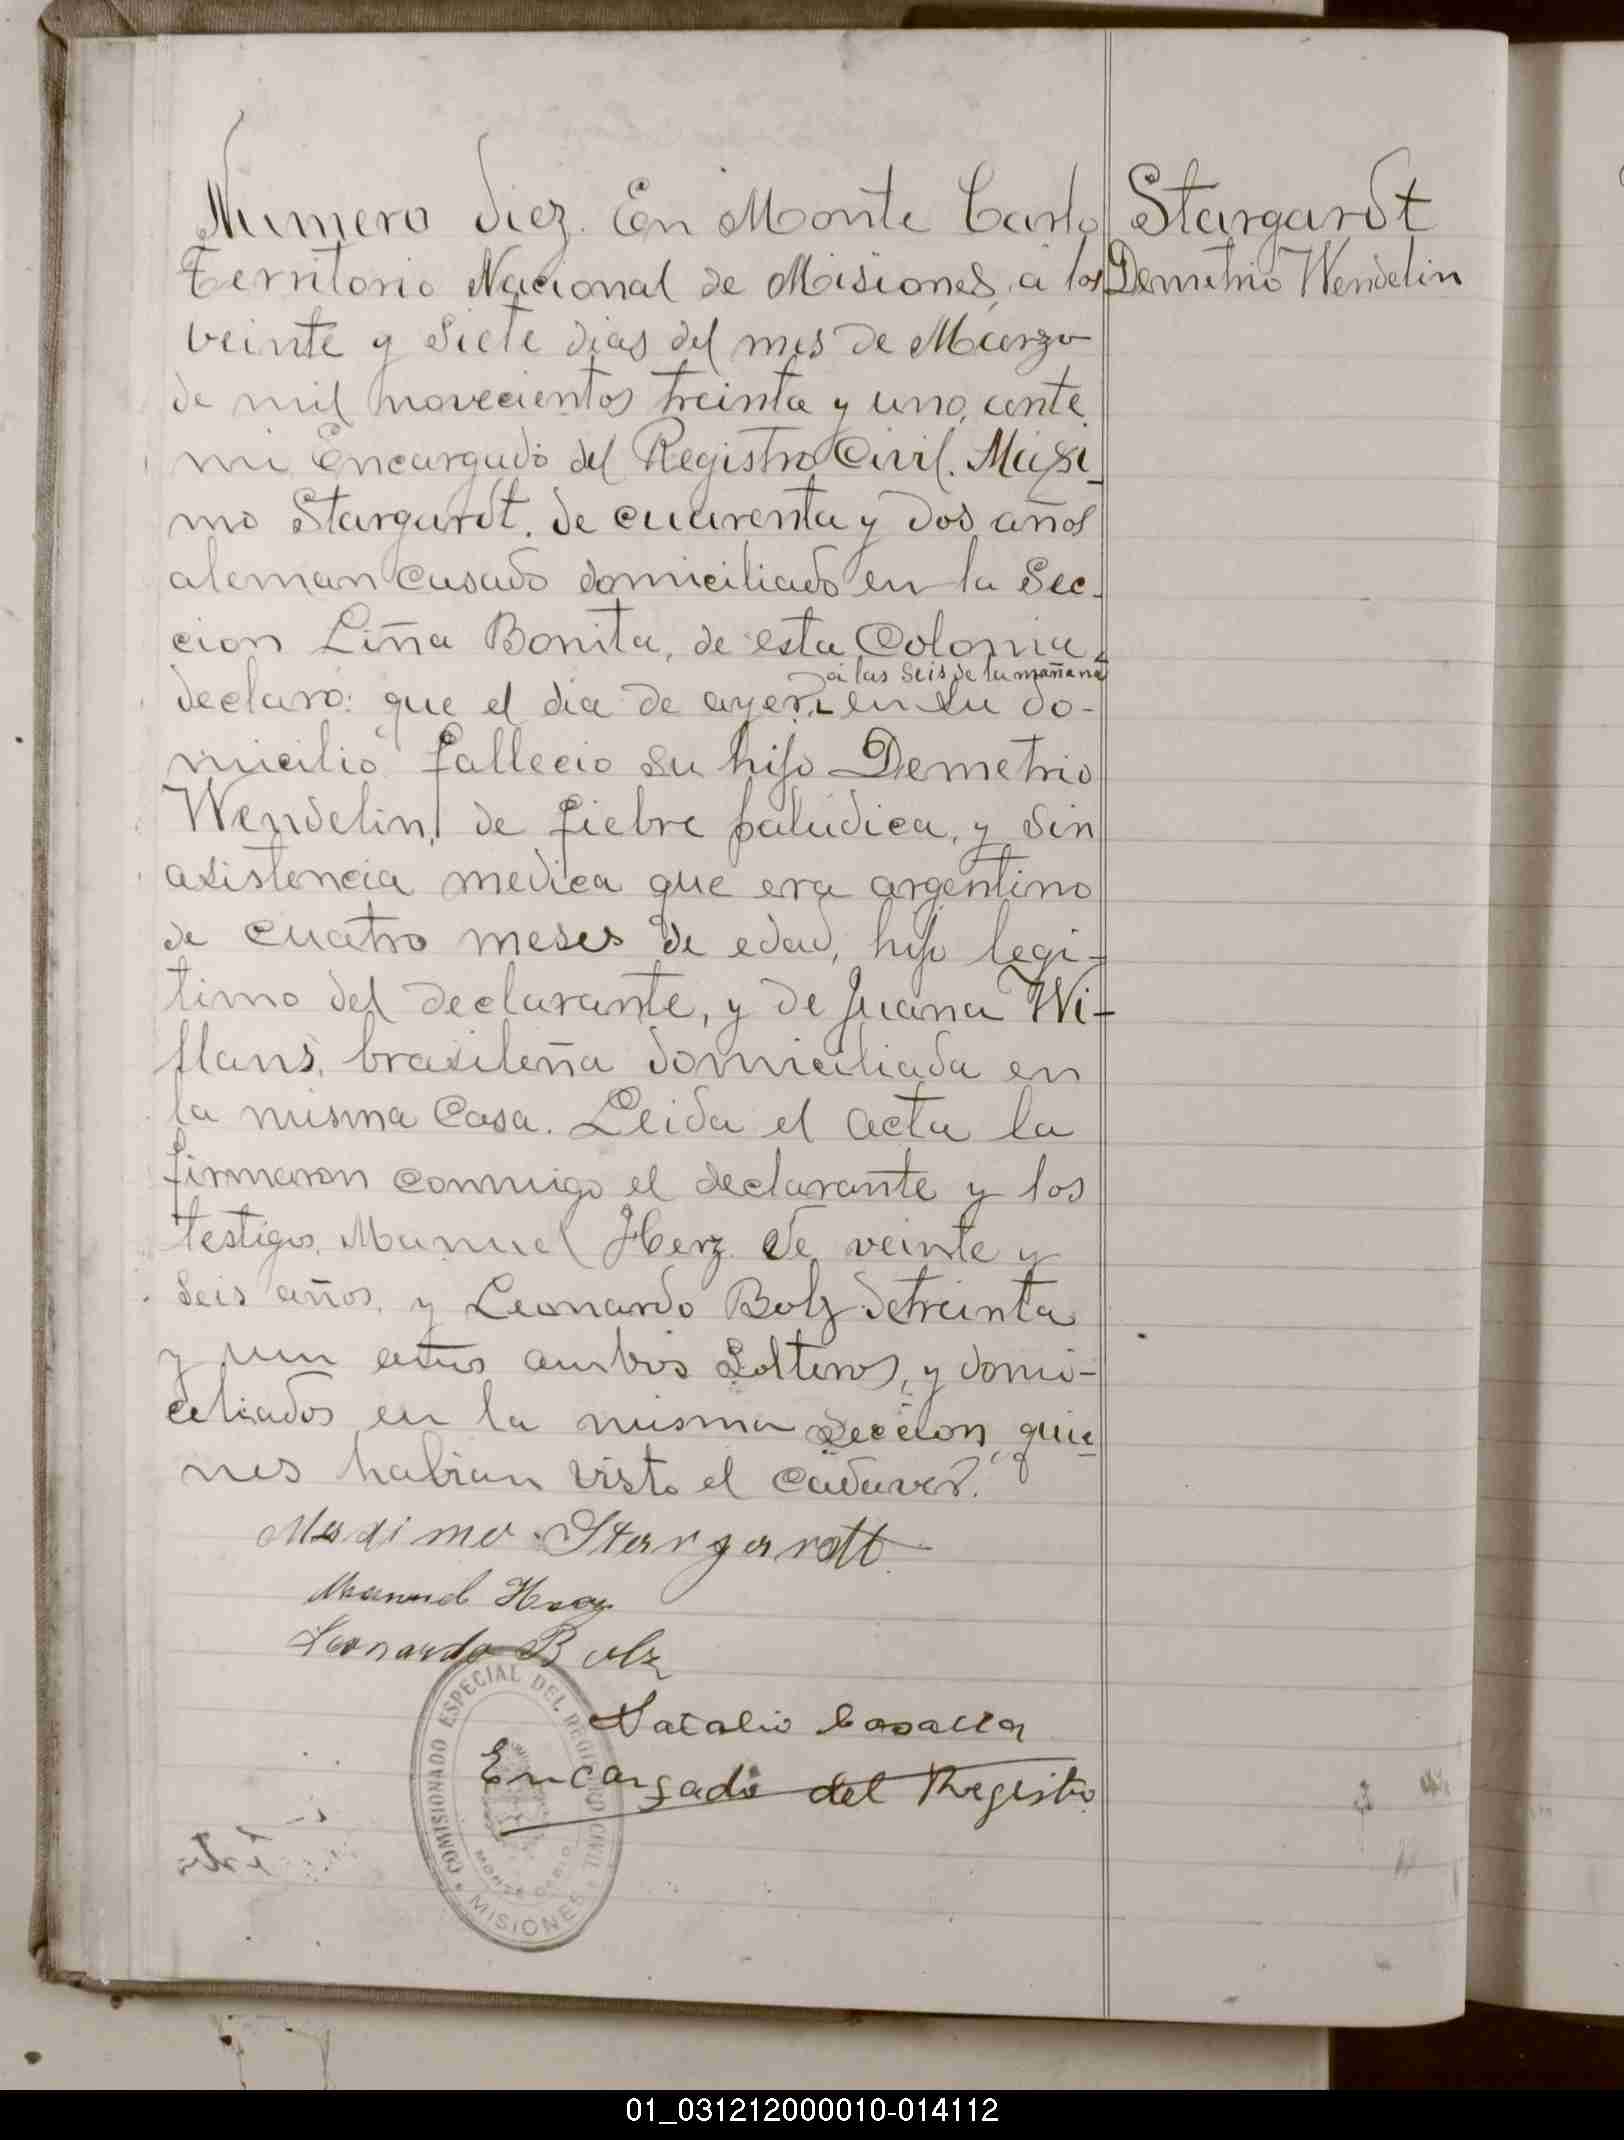 Numero diez. En Monte Carlo
Territorio Nacional de Misiones, a los
veinte y siete dias del mes de Marzo
de mil novecientos treinta y uno, ante
mi Encargado del Registro Civil. Maxi-
mo Stargardt. de cuarenta y dos años
aleman casado domiciliado en la Sec-
cion Liña Bonita, de esta Colonia,
a las seis de la mañana
declaro: que el dia de ayer, en su do-
micilio fallecio su hijo Demetrio
Wendelin, de fiebre paludica, y sin
asistencia medica que era argentino
de cuatro meses de edad, hijo legi-
timo del declarante, y de Juana Wi-
flans, brasileña domiciliada en
la misma Casa. Leida el acta la
firmaron conmigo el declarante y los
testigos, Manuel Herz de veinte y
seis años, y Leonardo Bolz de treinta
y un años ambos solteros, y domi-
ciliados en la misma seccion, quie-
nes habian visto el cadaver.
Stargardt
Demetrio Wendelin
Maximo Stargardt
Manuel Herz
Leonardo Bolz
Natalio
Encargado del Registro
COMISIONADO ESPECIAL DEL REGISTRO CIVIL
MONTE CARLO
MISIONES
01_031212000010-014112